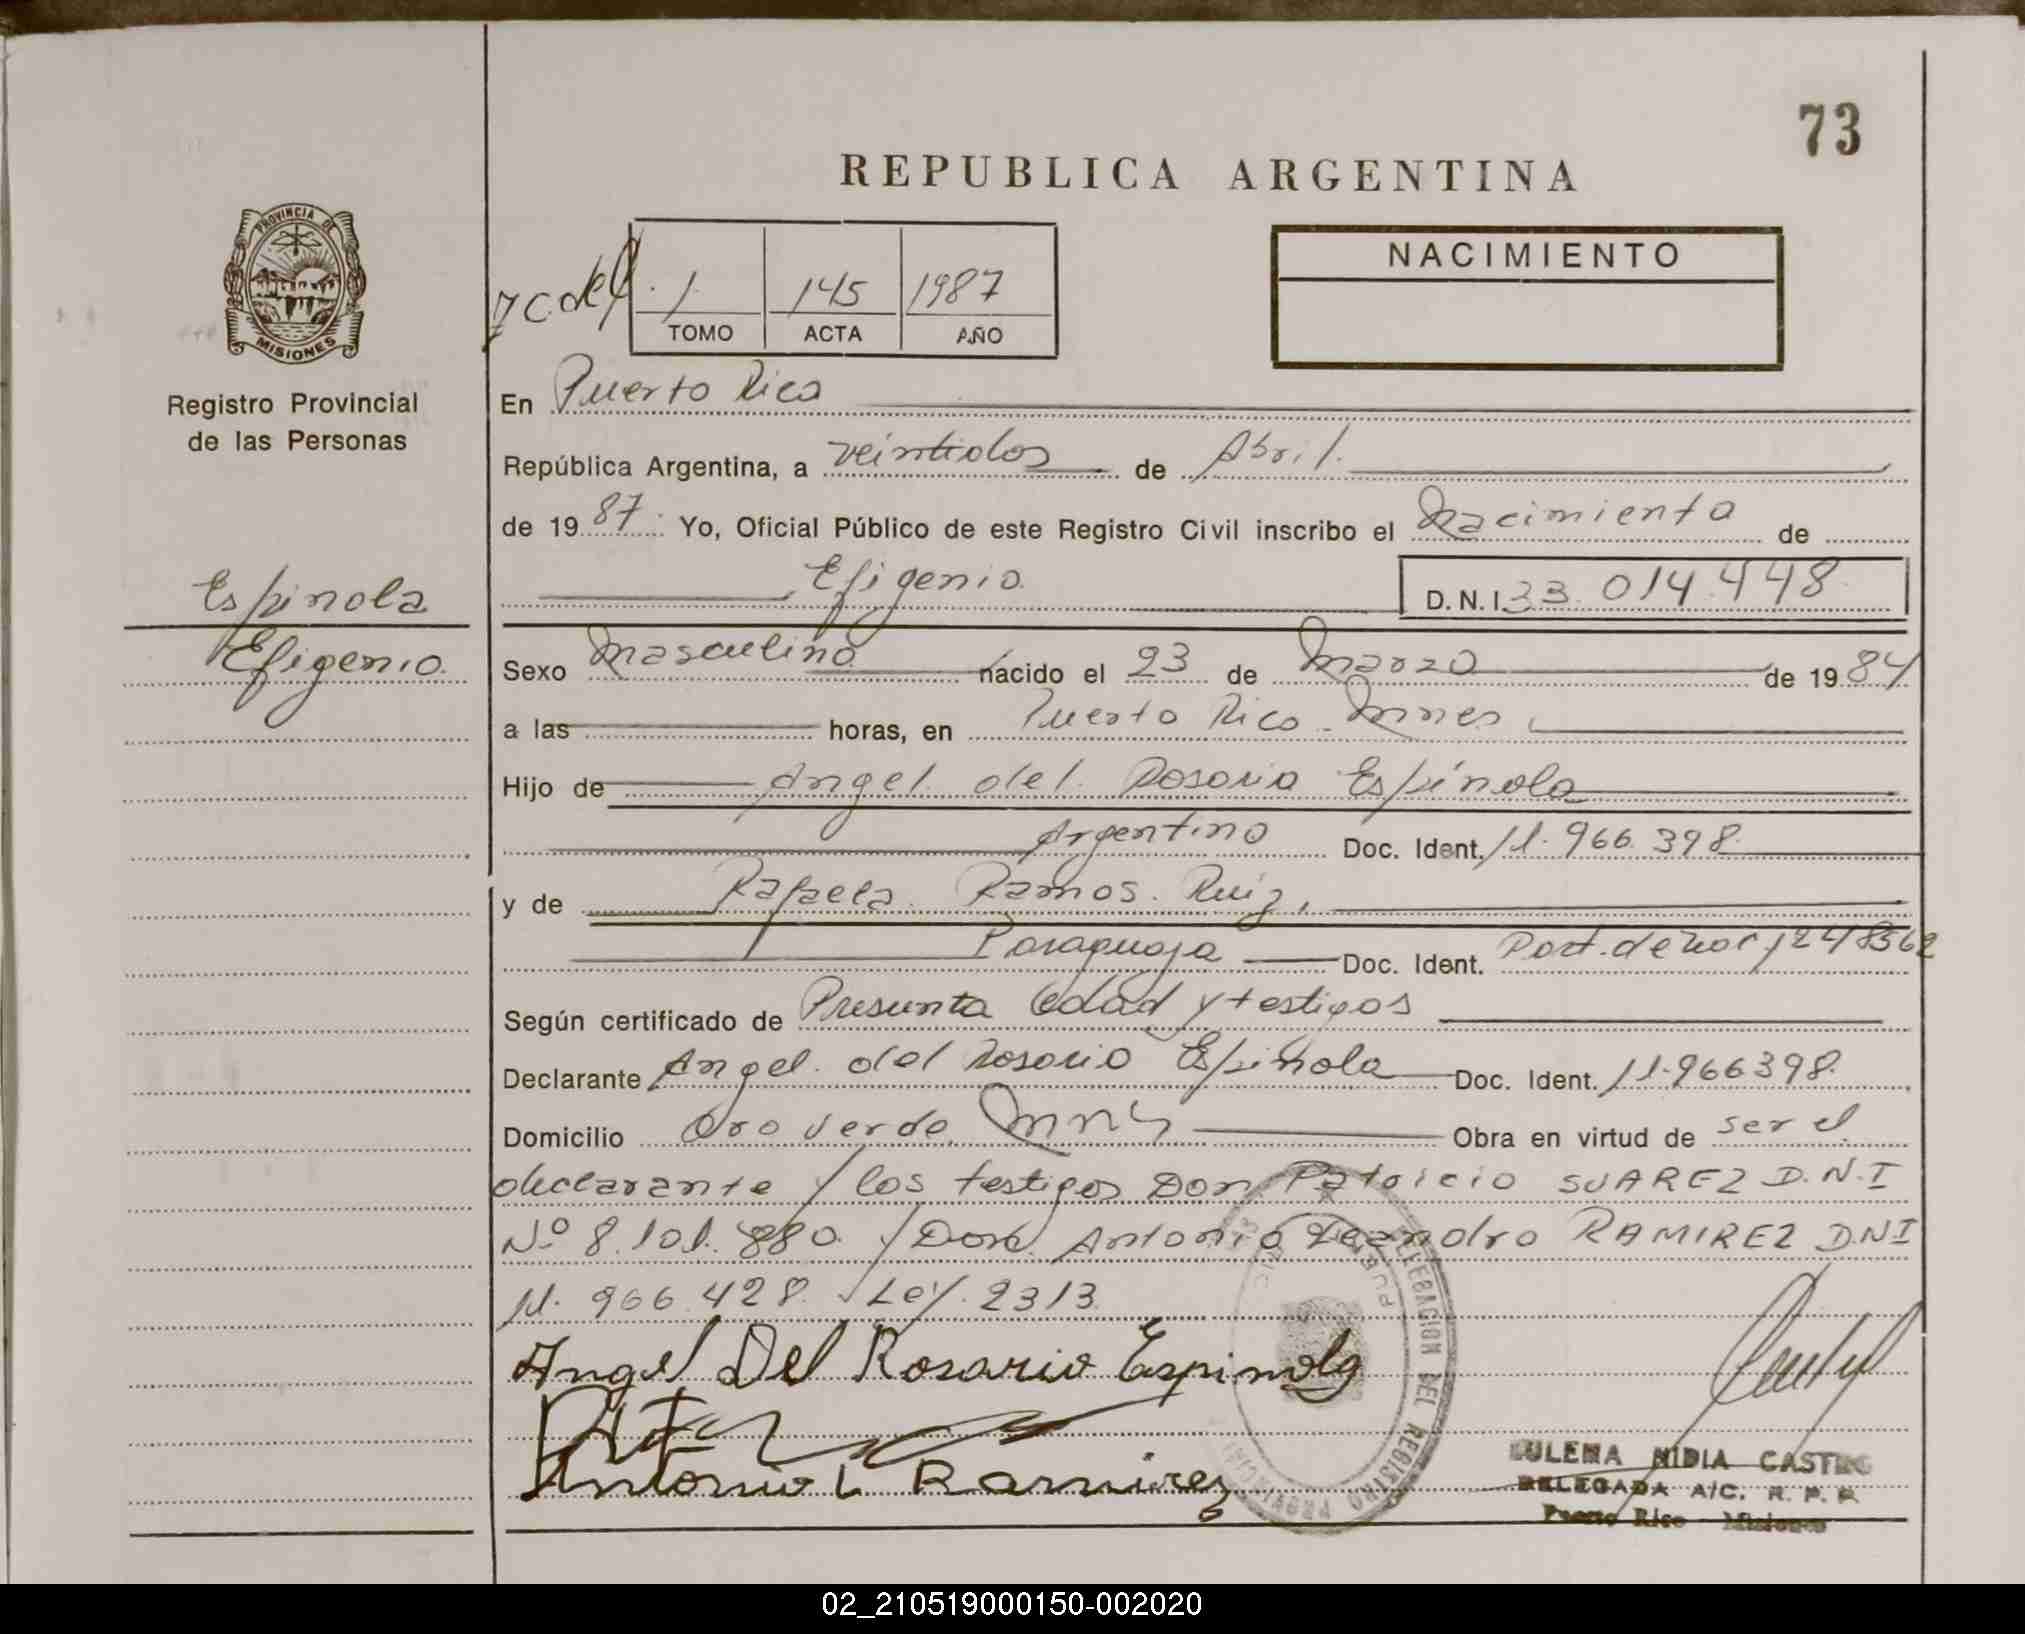 73
REPUBLICA ARGENTINA
PROVINCIA DE
MISIONES
Registro Provincial
de las Personas
1 145 1987
TOMO ACTA AÑO
NACIMIENTO
En Puerto Rico
República Argentina, a veintidos de Abril.
de 1987. Yo, Oficial Público de este Registro Civil inscribo el Nacimiento de
Efigenio D.N.I. 33.014.448
Espinola
Efigenio.
Sexo Masculino nacido el 23 de Marzo de 1984
a las horas, en Puerto Rico. Mnes,
Hijo de Angel del Rosario Espínola
Argentino Doc. Ident. 11.966.398.
y de Rafaela Ramos Ruiz,
Paraguaya Doc. Ident. Part. de nac 1248562
Según certificado de Presunta edad y testigos
Declarante Angel del Rosario Espínola Doc. Ident. 11.966398.
Domicilio Oro Verde Mnes Obra en virtud de ser el
declarante y los testigos Don Patricio SUAREZ D.N.I
Nº 8.101.880. y Don Antonio Leandro RAMIREZ DNI
11.966.428. Ley. 2313.
Angel Del Rosario Espinola
Antonio L Ramirez
DELEGACION DEL REGISTRO PROVINCIAL
ZULEMA NIDIA CASTRO
DELEGADA A/C. R. P. P.
Puerto Rico - Misiones
02_210519000150-002020